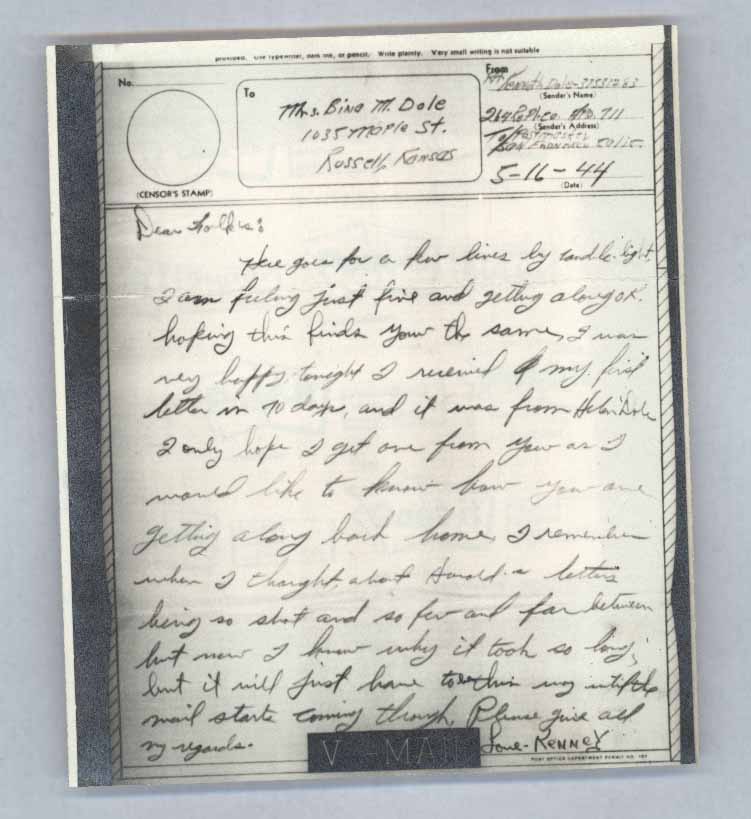 provided. Use typewriter, dark ink, or pencil. Write plainly. Very small writing is not suitable
No.
(CENSOR'S STAMP)
To
Mrs. Bina M. Dole
1035 Maple St.
Russell, Kansas
From
Pvt Kenneth Dole-
(Sender's Name)
APO 711
(Sender's Address)
Postmaster
San Francisco Calif.
5-16-44
(Date)
Dear Folks:
Here goes for a few lines by candle light,
I am feeling just fine and getting along OK.
hoping this finds you the same, I was
very happy, tonight I received my first
letter in 70 days, and it was from Helen Dole
I only hope I get one from you as I
would like to know how you are
getting along back home, I remember
when I thought, about Harold's letters
being so shot and so few and far between
but now I know why it took so long,
but it will just have to be this way until the
mail starts coming through, Please give all
my regards.
Love-Kenney
V-MAIL
POST OFFICE DEPARTMENT PERMIT NO.